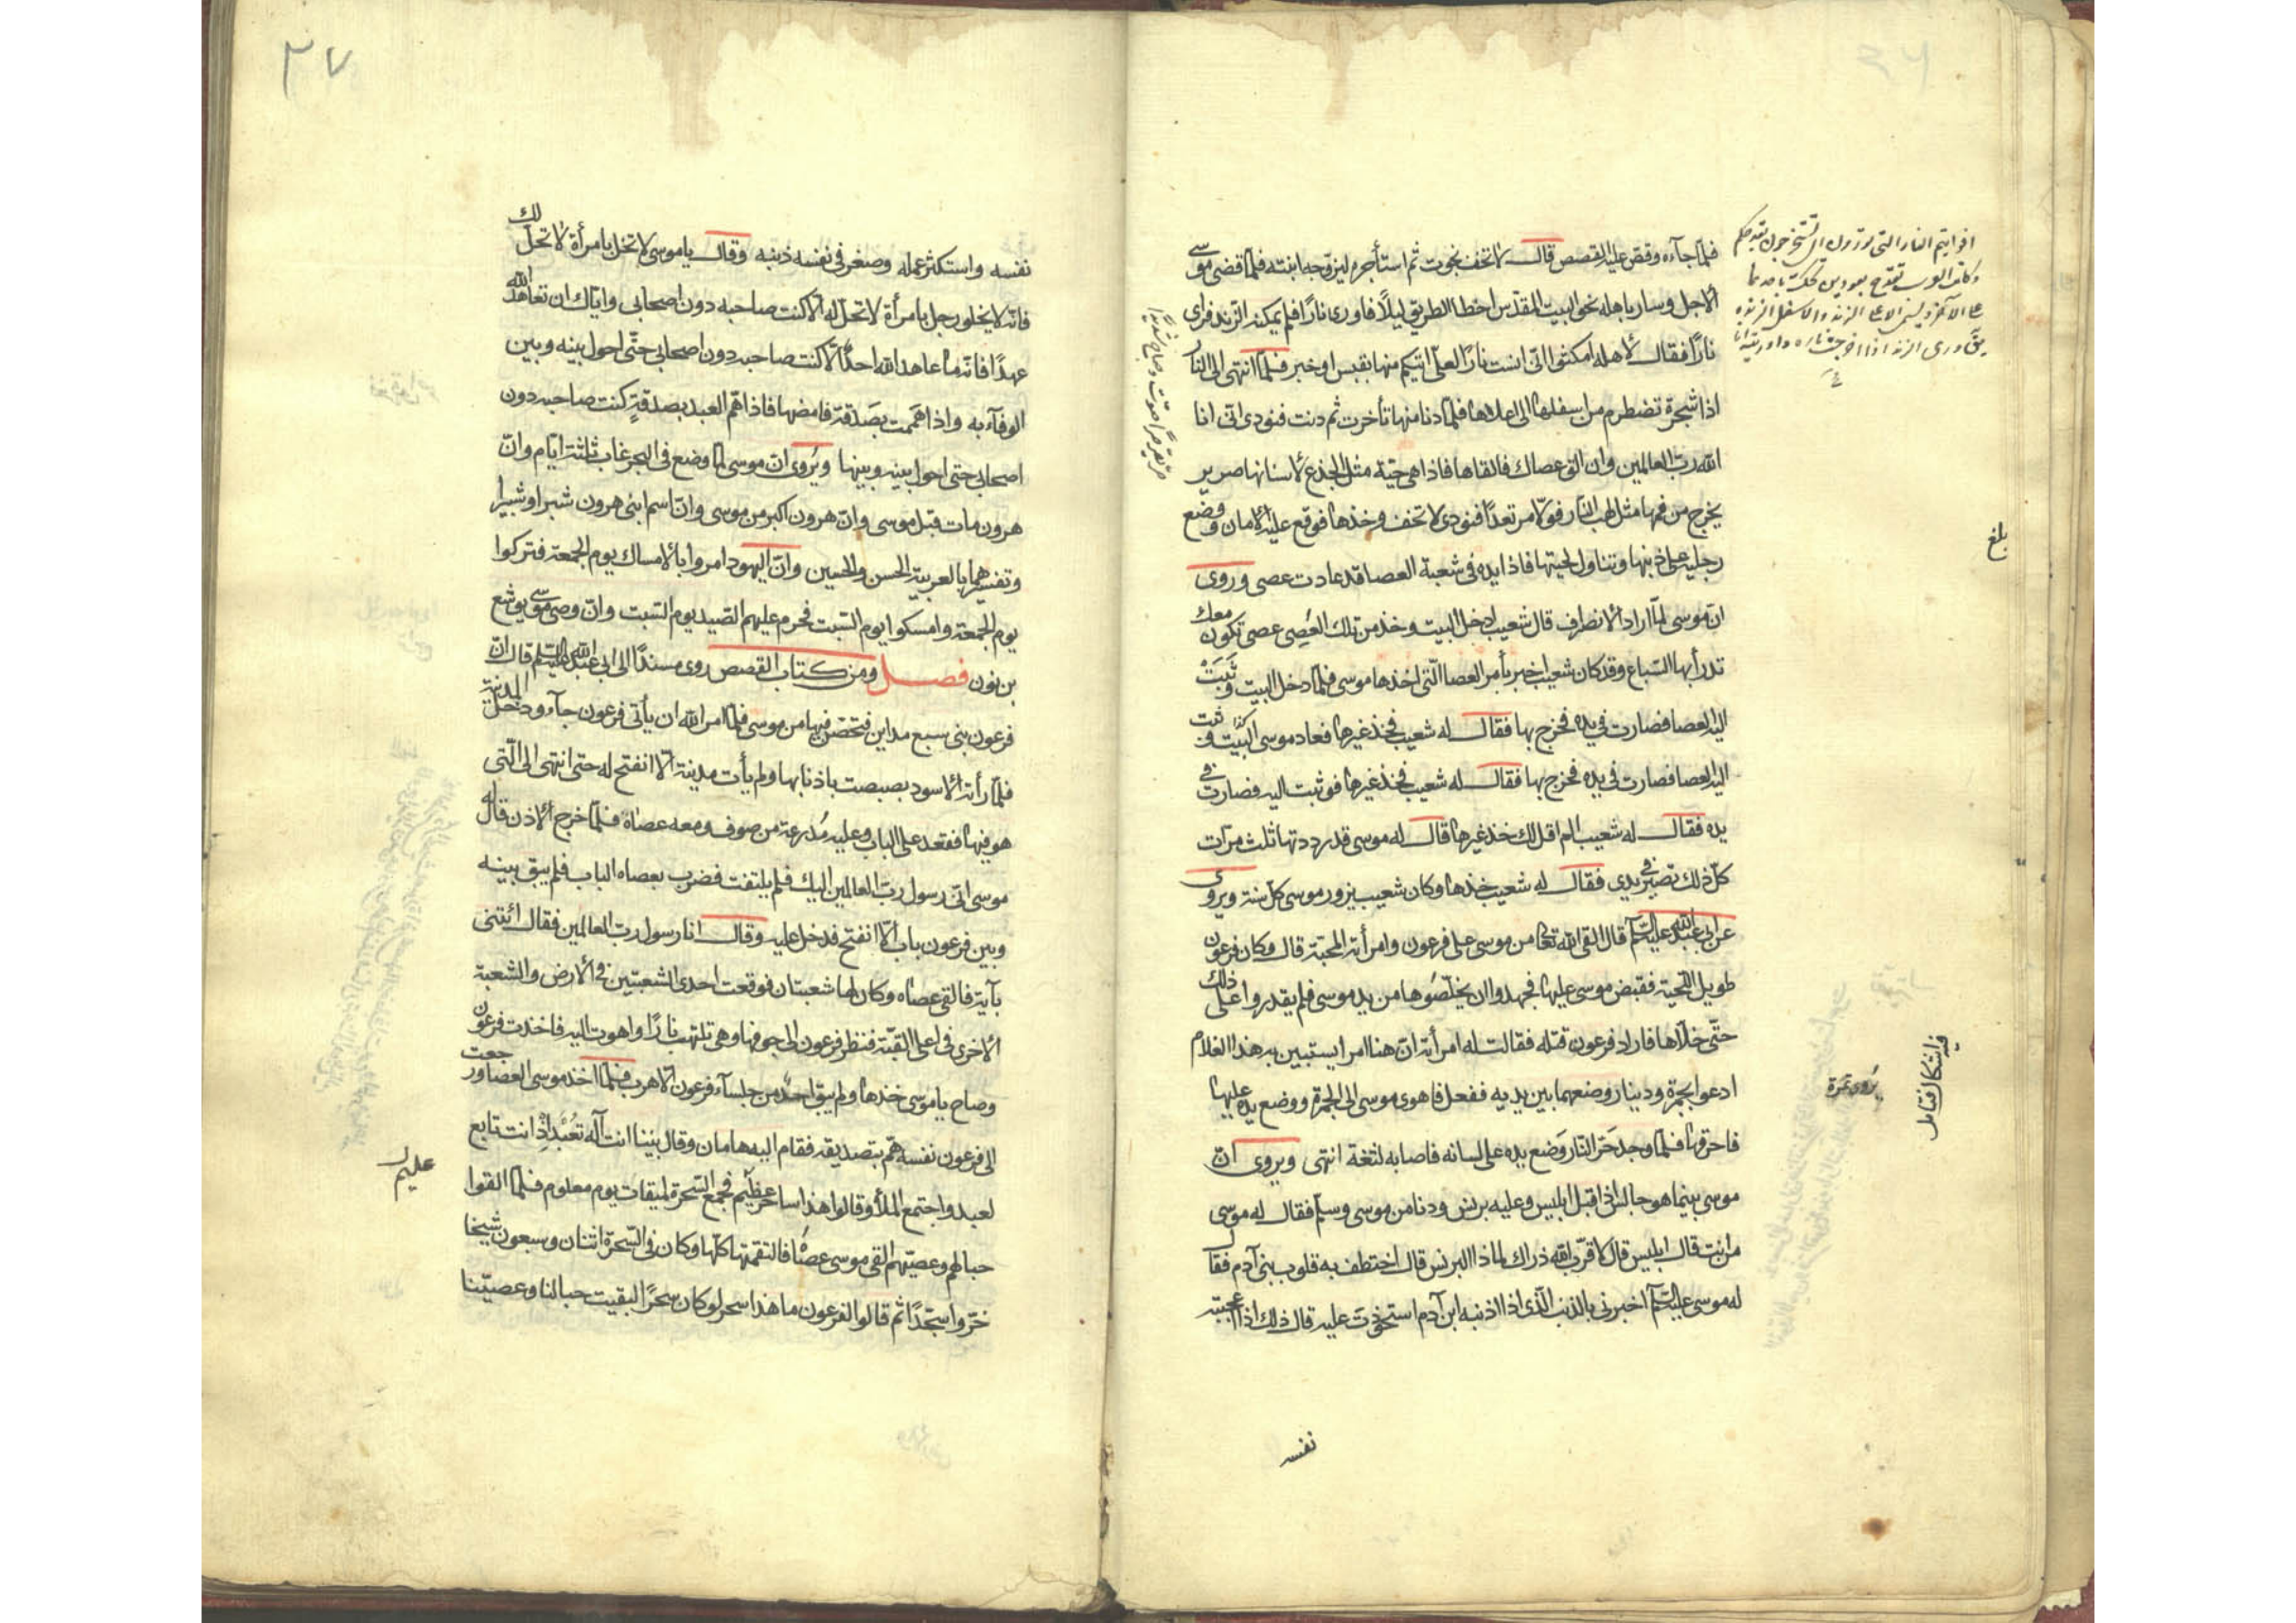 ٣٦
فلمّا جآءه وقصّ عليه القصص قال لا تخف نجوت ثم استأجره ليزوّجه ابنته فلمّا قضى موسى
الاجل وسار باهله نحو البيت المقدّس اخطا الطريق ليلًا فاورى نارًا فلم يمكنه الزند فراى
نارًا فقال لاهله امكثوا انّى انست نارًا لعلّى اتيكم منها بقبس او خبر فلمّا انتهى الى النار
اذا شجرة تضطرم من اسفلها الى اعلاها فلمّا دنا منها تأخرت ثم دنت فنودى انّى انا
الله ربّ العالمين وان الق عصاك فالقاها فاذا هى حيّة مثل الجذع لاسنانها صرير
يخرج من فمها مثل لهب النار فولّا مرتعدًا فنودى لا تخف وخذها فوقع عليه الامان ووضع
رجليه على ذنبها وتناول لحيتها فاذا يده فى شعبة العصا قد عادت عصى وروى
انّ موسى لمّا اراد الانصراف قال شعيب ادخل البيت وخذ من تلك العُصِى عصى تكون معك
تدرأ بها السّباع وقد كان شعيب اخبر بأمر العصا الّتى اخذها موسى فلمّا دخل البيت وثَبَتْ
اليه العصا فصارت فى يده فخرج بها فقال له شعيب فخذ غيرها فعاد موسى البيت فوثبت
اليه العصا فصارت فى يده فخرج بها فقال له شعيب فخذ غيرها فوثبت اليه فصارت فى
يده فقال له شعيب الم اقل لك خذ غيرها قال له موسى قد رددتها ثلث مرّات
كلّ ذلك تصير فى يدى فقال له شعيب خذها وكان شعيب يزور موسى كلّ سنة ويروى
عن ابى عبد الله عليه السّلم قال القى الله تعالى من موسى على فرعون وامرأته المحبّة قال وكان فرعون
طويل اللّحية فقبض موسى عليها فجهدوا ان يخلّصُوها من يد موسى فلم يقدروا على ذلك
حتّى خلّاها فاراد فرعون قتله فقالت له امرأته انّ هنا امر ايستبين به هذا الغلام
ادعوا بجمرة ودينار وضعهما بين يديه ففعل فاهوى موسى الى الجمرة ووضع يده عليها
فاحرقها فلمّا وجد حَرّ النّار وَضع يده على لسانه فاصابه لثغة انتهى ويروى انّ
موسى بينما هو جالس اذ اقبل ابليس وعليه برنس ودنا من موسى وسلّم فقال له موسى
من انت قال ابليس قال لا قرّب الله دارك لماذا البرنس قال اختطف به قلوب بنى آدم فقال
له موسى عليه السّلم اخبرنى بالذنب الّذى اذا اذنبه ابن آدم استحوذت عليه قال ذلك اذا اعجبته
نفسه
بلغ
يروى تمرة
فيه اشكال فتامل
٣٧
نفسه واستكثر عمله وصغر فى نفسه ذنبه وقال يا موسى لا تخل بامرأة لا تحلّ لك
فانّه لا يخلو رجل بامرأة لا تحلّ له الّا كنت صاحبه دون اصحابى وايّاك ان تعاهد الله
عهدًا فانّه ما عاهد الله احدًا الّا كنت صاحبه دون اصحابى حتّى احول بينه وبين
الوفآء به واذا هَمَمت بصَدقة فامضها فاذا همّ العبد بصدقةٍ كنت صاحبه دون
اصحابى حتى احول بينه وبينها ويُروى انّ موسى لمّا وضع فى البحر غاب ثلثة ايّام وانّ
هرون مات قبل موسى وانّ هرون اكبر من موسى وانّ اسم ابنى هرون شبرا وشبيرا
وتفسيرهما بالعربية الحسن والحسين وانّ اليهود امروا بالامساك يوم الجمعة فتركوا
يوم الجمعة وامسكوا يوم السّبت فحرم عليهم الصّيد يوم السّبت وانّ وصىّ موسى يوشع
بن نون فصل ومن كتاب القصص روى مسندًا الى ابى عبد الله عليه السّلم قال انّ
فرعون بنى سبع مداين فتحصّن فيها من موسى فلمّا امر الله ان يأتى فرعون جآءه ودخل المدينة
فلمّا رأته الاسود بصبصت باذنابها ولم يأت مدينة الّا انفتح له حتى انتهى الى الّتى
هو فيها فقعد على الباب وعليه مُدرعة من صوف ومعه عصاه فلمّا خرج الاذن قال له
موسى انّى رسول ربّ العالمين اليك فلم يلتفت فضرب بعصاه الباب فلم يبق بينه
وبين فرعون باب الّا انفتح فدخل عليه وقال انا رسول ربّ العالمين فقال ائتنى
بآية فالقى عصاه وكان لها شعبتان فوقعت احدى الشعبتين فى الارض والشعبة
الاخرى فى اعلى القبّة فنظر فرعون الى جوفها وهى تلتهب نارًا واهوت اليه فاخذت فرعون
وصاح يا موسى خذها ولم يبق احد من جلسآء فرعون الّا هرب فلمّا اخذ موسى العصا ورجعت
الى فرعون نفسه همّ بتصديقه فقام اليه هامان وقال بينا انت آله تُعْبَد اذْ انت تابع
لعبد واجتمع الملأ وقالوا هذا ساحر عظيم فجمع السّحرة لميقات يوم معلوم فلمّا القوا
حبالهم وعصيّهم القى موسى عصاه فالتقمتها كلّها وكان فى السّحرة اثنان وسبعون شيخا
خرّوا سجّدًا ثم قالوا لفرعون ما هذا سحر لو كان سحرًا لبقيت حبالنا وعصيّنا
عليم